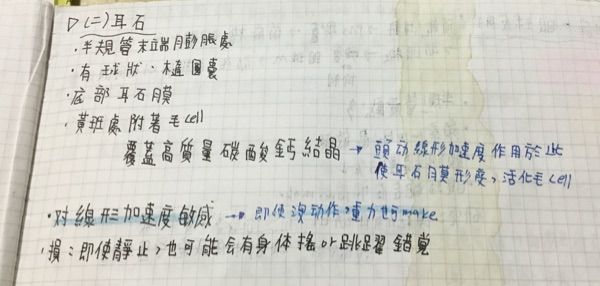 ▷(二)耳石
・半規管末端膨脹處
・有球狀、橢圓囊
・底部耳石膜
・黃斑處附著毛cell
覆蓋高質量碳酸鈣結晶 → 頭动線形加速度作用於此
使耳石膜形变,活化毛cell
・对線形加速度敏感 → 即使沒动作,重力也可make
・損:即使靜止,也可能会有身体搖or跳躍錯覺